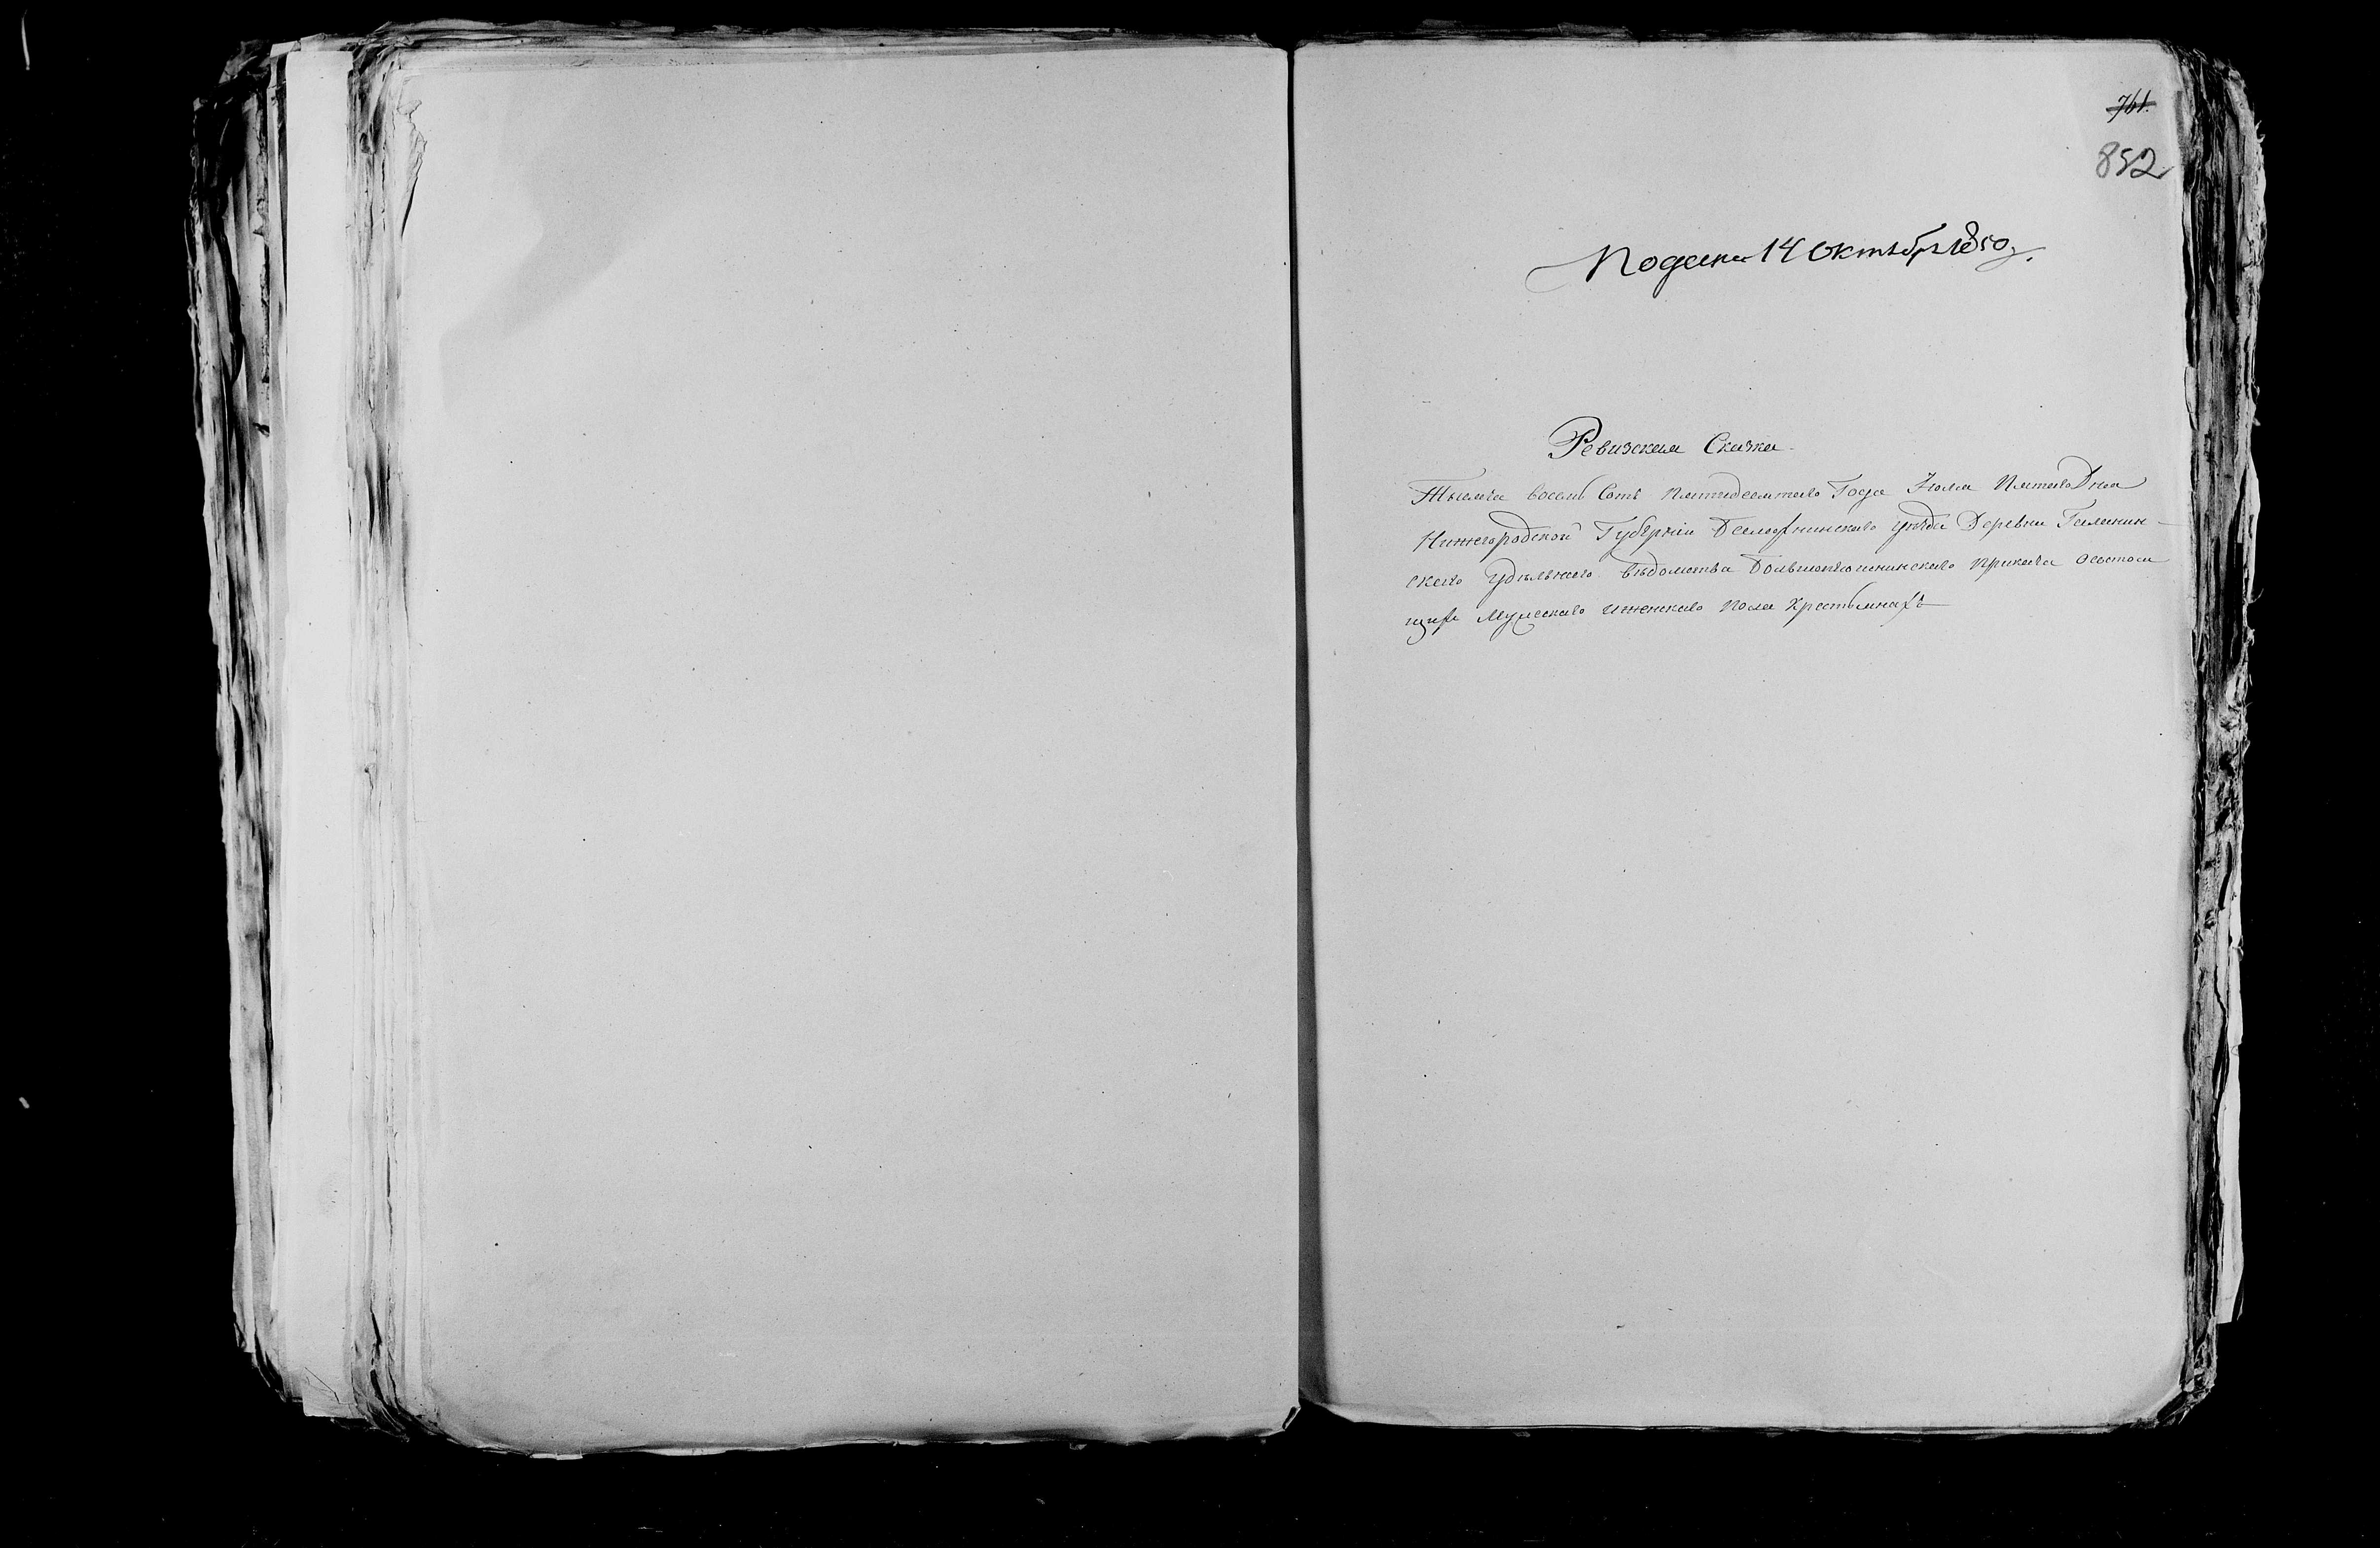 761.
852
Подана 14 Октября 1850 г.
Ревизская Сказка
Тысяча восемь Сотъ пятидесятаго Года Июля Пятаго Дня
Нижегородской Губерніи уѣзда Деревни
скаго Удѣльнаго вѣдомства приказа о состоя
щихъ Мужескаго и женскаго пола крестьянахъ